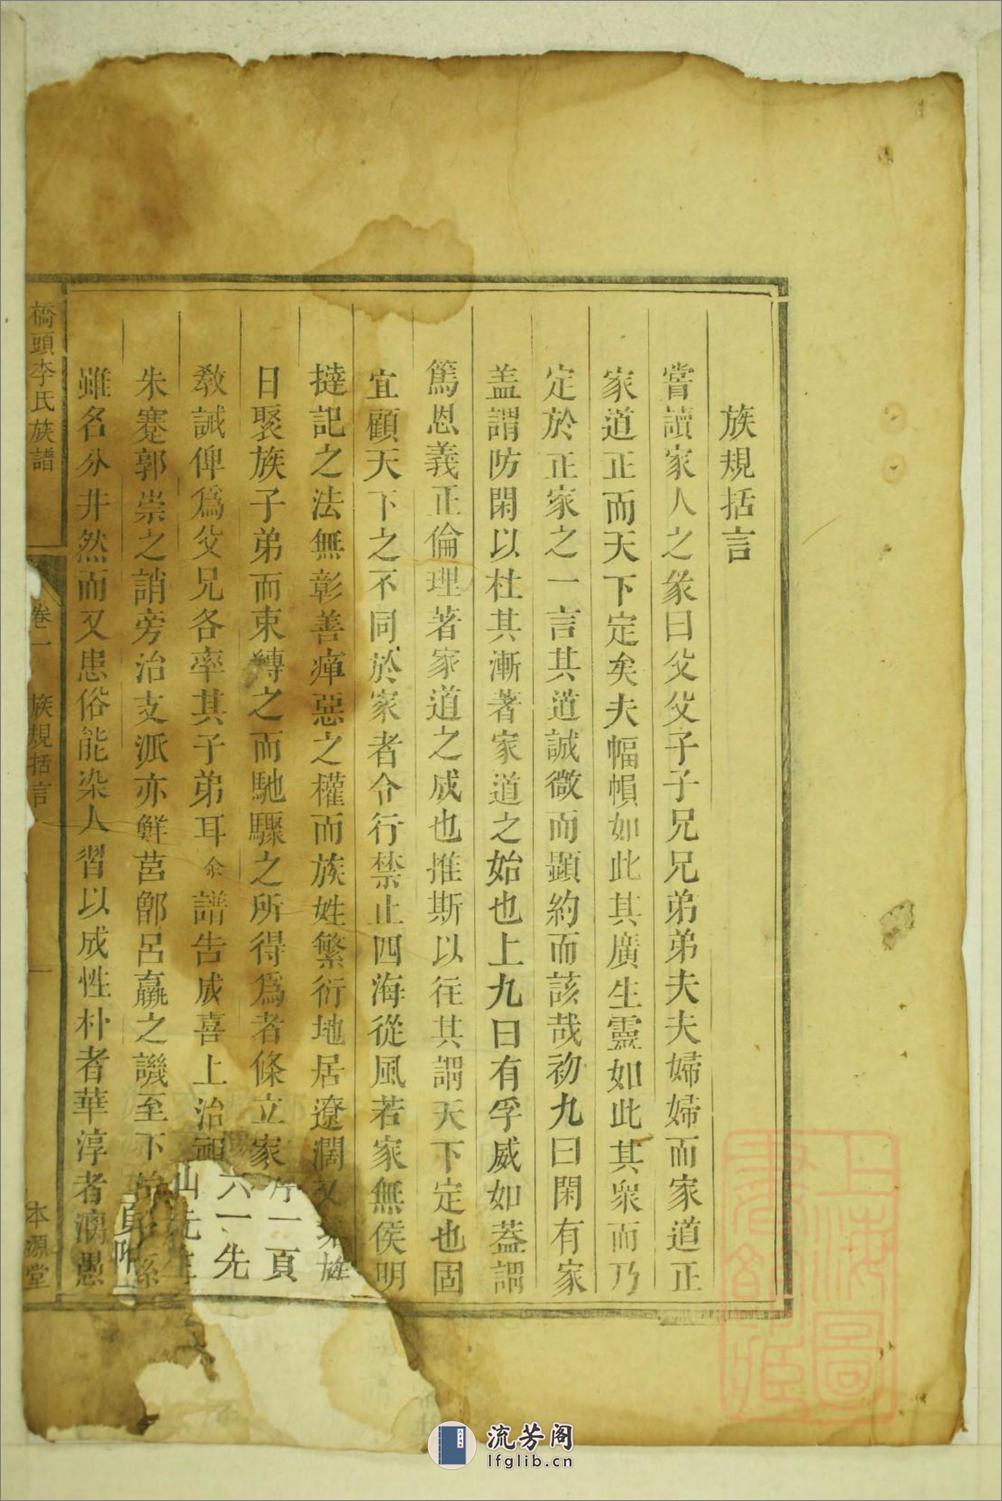 族規括言
嘗讀家人之彖曰父父子子兄兄弟弟夫夫婦婦而家道正
家道正而天下定矣夫幅幀如此其廣生靈如此其衆而乃
定於正家之一言其道誠微而顯約而該哉初九曰閑有家
盖謂防閑以杜其漸著家道之始也上九曰有孚威如蓋謂
篤恩義正倫理著家道之成也推斯以往其謂天下定也固
宜顧天下之不同於家者令行禁止四海從風若家無侯明
撻記之法無彰善癉惡之權而族姓繁衍地居遼濶又
日聚族子弟而束縳之而馳驟之所得爲者條立家
敎誡俾爲父兄各率其子弟耳余譜告成喜上治祖
朱蹇郭崇之誚旁治支派亦鮮莒鄫呂嬴之譏至下治
雖名分井然而又患俗能染人習以成性朴者華淳者漓愚
橋頭李氏族譜
卷一
族規括言
一
本源堂
一頁
六一先
上海圖書館藏
流芳阁
lfglib.cn